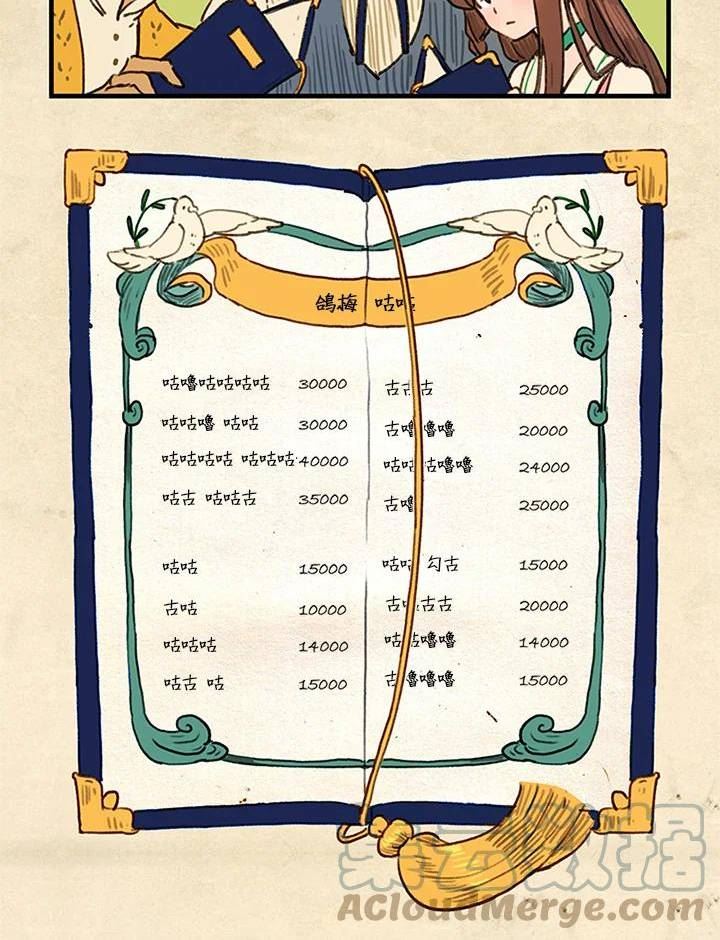 鸽梅 咕咕
咕噜咕咕咕咕 30000
咕咕噜 咕咕 30000
咕咕咕咕 咕咕咕 40000
咕古 咕咕古 35000
咕咕 15000
古咕 10000
咕咕咕 14000
咕古 咕 15000
古古古 25000
古噜噜噜 20000
咕咕古噜噜 24000
古噜 25000
咕咕 勾古 15000
古咕古古 20000
咕咕噜噜 14000
古噜噜噜 15000
ACloudMerge.com